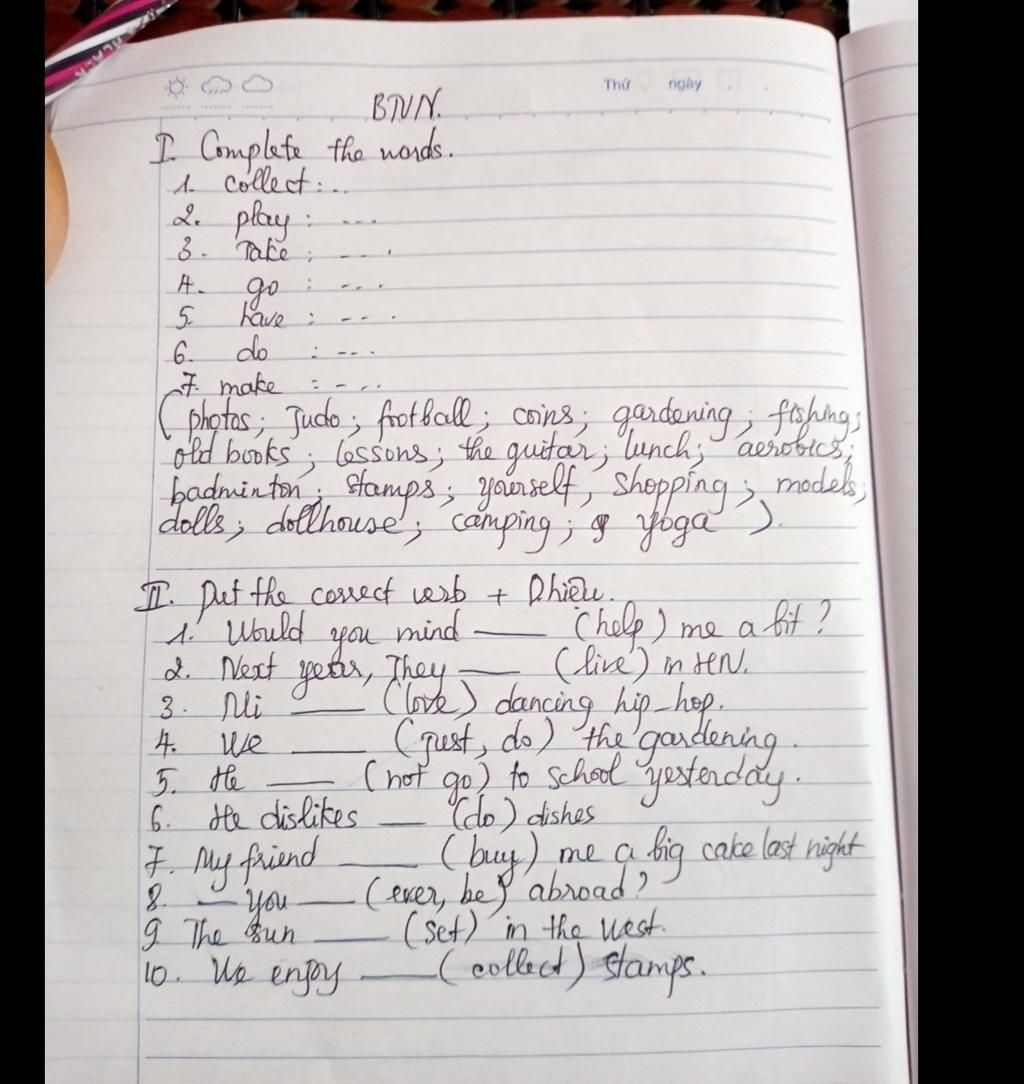 Thứ ngày
BTVN.
I. Complete the words.
1. collect : ...
2. play : ...
3. Take : ...
4. go : ...
5. have : ...
6. do : ...
7. make : ...
( photos; Judo; football; coins; gardening; fishing;
old books; lessons; the guitar; lunch; aerobics;
badminton; stamps; yourself, shopping; models;
dolls; dollhouse; camping; yoga ).
II. Put the correct verb + Dhiệu.
1. Would you mind ___ (help) me a bit?
2. Next years, They ___ (live) in HN.
3. Mi ___ (love) dancing hip-hop.
4. We ___ (just, do) the gardening.
5. He ___ (not go) to school yesterday.
6. He dislikes ___ (do) dishes
7. My friend ___ (buy) me a big cake last night
8. _ you ___ (ever, be) abroad?
9. The sun ___ (set) in the west.
10. We enjoy ___ (collect) stamps.